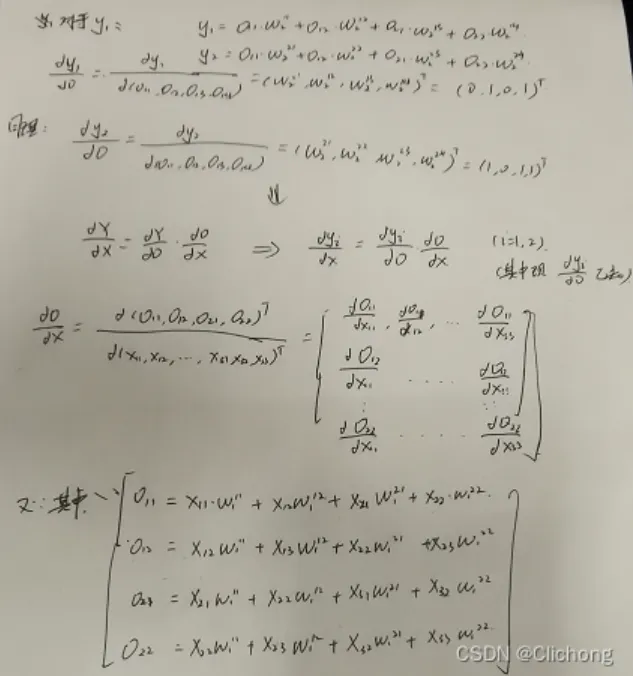 对于 y₁: y₁ = O₁₁·w₂¹¹ + O₁₂·w₂¹² + O₂₁·w₂¹³ + O₂₂·w₂¹⁴
y₂ = O₁₁·w₂²¹ + O₁₂·w₂²² + O₂₁·w₂²³ + O₂₂·w₂²⁴
dy₁/dO = dy₁/d(O₁₁, O₁₂, O₁₃, O₁₄) = (w₂¹¹, w₂¹², w₂¹³, w₂¹⁴)ᵀ = (0, 1, 0, 1)ᵀ
同理: dy₂/dO = dy₂/d(O₁₁, O₁₂, O₁₃, O₁₄) = (w₂²¹, w₂²², w₂²³, w₂²⁴)ᵀ = (1, 0, 1, 1)ᵀ
⇓
dY/dX = dY/dO · dO/dX ⇒ dyᵢ/dx = dyᵢ/dO · dO/dx (i=1,2).
(其中 dyᵢ/dO 已)
dO/dX = d(O₁₁, O₁₂, O₂₁, O₂₂)ᵀ/d(x₁₁, x₁₂, ⋯, x₃₁, x₃₂, x₃₃)ᵀ = [ dO₁₁/dx₁₁, dO₁₁/dx₁₂, ⋯ dO₁₁/dx₃₃
dO₁₂/dx₁₁ ⋯⋯ dO₁₂/dx₃₃
⋮ ⋮
dO₂₂/dx₁₁ ⋯⋯ dO₂₂/dx₃₃ ]
又∵其中 [ O₁₁ = x₁₁·w₁¹¹ + x₁₂w₁¹² + x₂₁w₁²¹ + x₂₂·w₁²²
O₁₂ = x₁₂w₁¹¹ + x₁₃w₁¹² + x₂₂w₁²¹ + x₂₃w₁²²
O₂₁ = x₂₁w₁¹¹ + x₂₂w₁¹² + x₃₁w₁²¹ + x₃₂w₁²²
O₂₂ = x₂₂w₁¹¹ + x₂₃w₁¹² + x₃₂w₁²¹ + x₃₃w₁²² ]
CSDN @Clichong